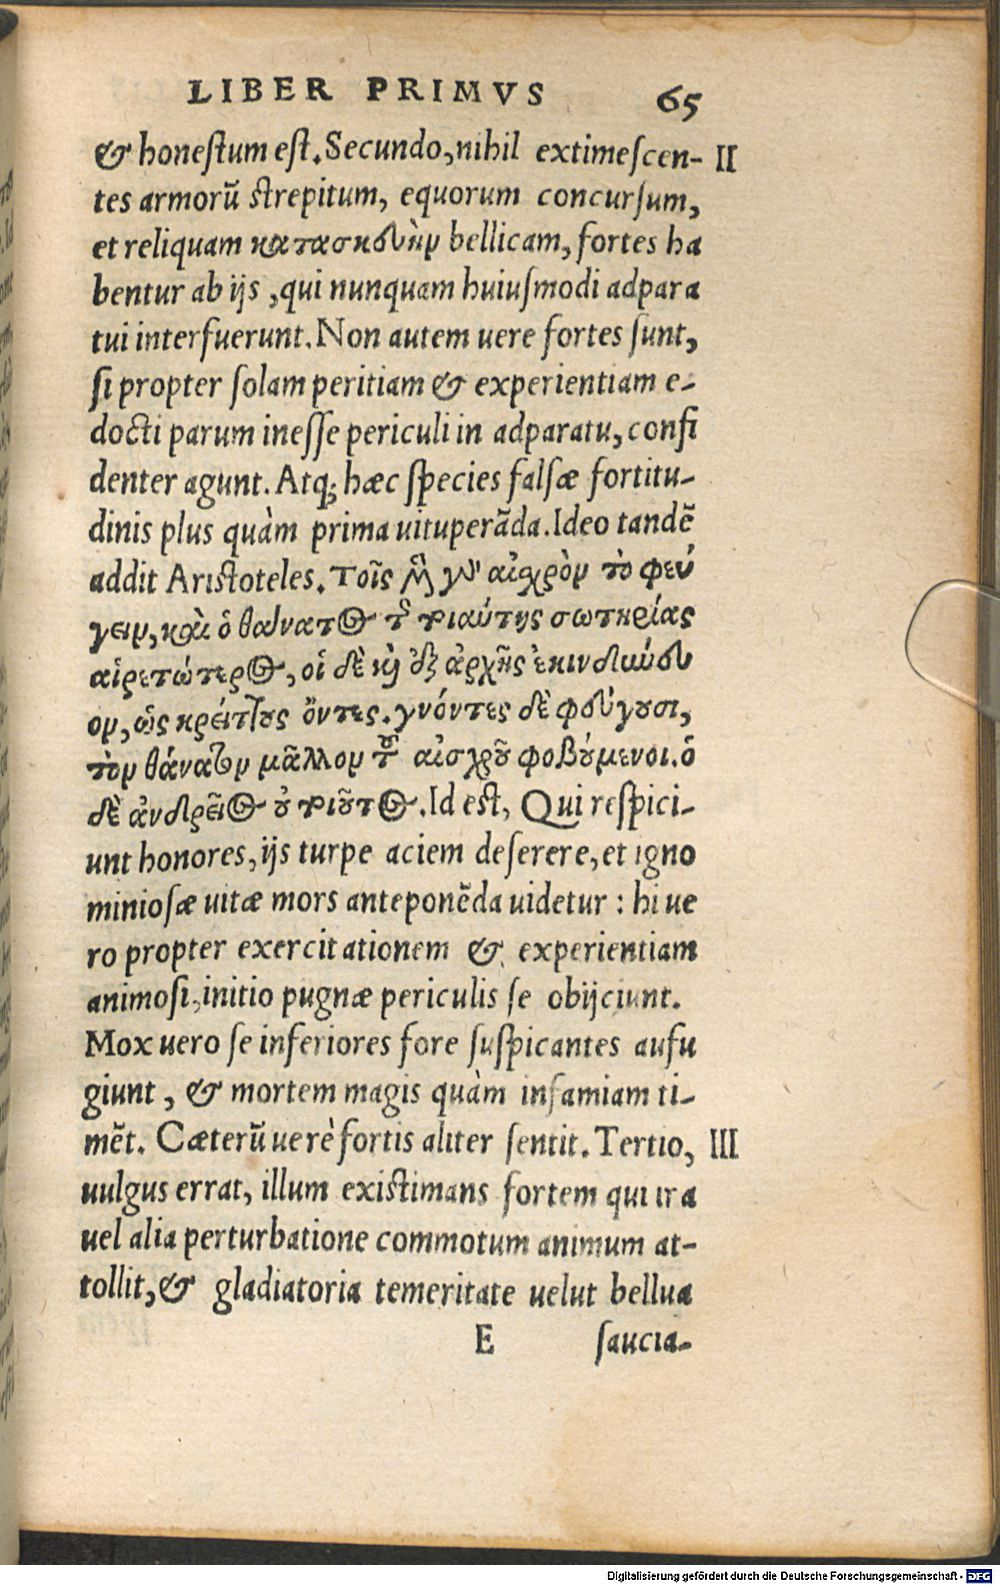 LIBER PRIMVS 65
& honestum est. Secundo, nihil extimescen- II
tes armorũ strepitum, equorum concursum,
et reliquam κατασκευὴν bellicam, fortes ha
bentur ab ijs, qui nunquam huiusmodi adpara
tui interfuerunt. Non autem uere fortes sunt,
si propter solam peritiam & experientiam e-
docti parum inesse periculi in adparatu, confi
denter agunt. Atq; hæc species falsæ fortitu-
dinis plus quàm prima uituperãda. Ideo tandẽ
addit Aristoteles. Τοῖς μὲν γὰρ αἰσχρὸν τὸ φεύ
γειν, καὶ ὁ θάνατος τῆς τοιαύτης σωτηρίας
αἱρετώτερος, οἱ δὲ καὶ ἐξ ἀρχῆς ἐκινδύνευ
ον, ὡς κρείττους ὄντες. γνόντες δὲ φεύγουσι,
τὸν θάνατον μᾶλλον τοῦ αἰσχροῦ φοβούμενοι. ὁ
δὲ ἀνδρεῖος οὐ τοιοῦτος. Id est, Qui respici-
unt honores, ijs turpe aciem deserere, et igno
miniosæ uitæ mors anteponẽda uidetur: hi ue
ro propter exercitationem & experientiam
animosi, initio pugnæ periculis se obijciunt.
Mox uero se inferiores fore suspicantes aufu
giunt, & mortem magis quàm infamiam ti-
mẽt. Cæterũ uerè fortis aliter sentit. Tertio, III
uulgus errat, illum existimans fortem qui ira
uel alia perturbatione commotum animum at-
tollit, & gladiatoria temeritate uelut bellua
E saucia-
Digitalisierung gefördert durch die Deutsche Forschungsgemeinschaft - DFG